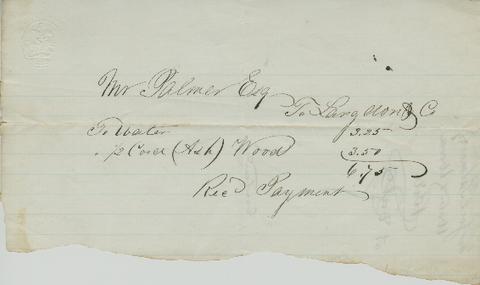 Mr Palmer Esq
To Langdon & Co
To Water 3.25
1/2 Cord (Ash) Wood 3.50
6.75
Rec'd Payment